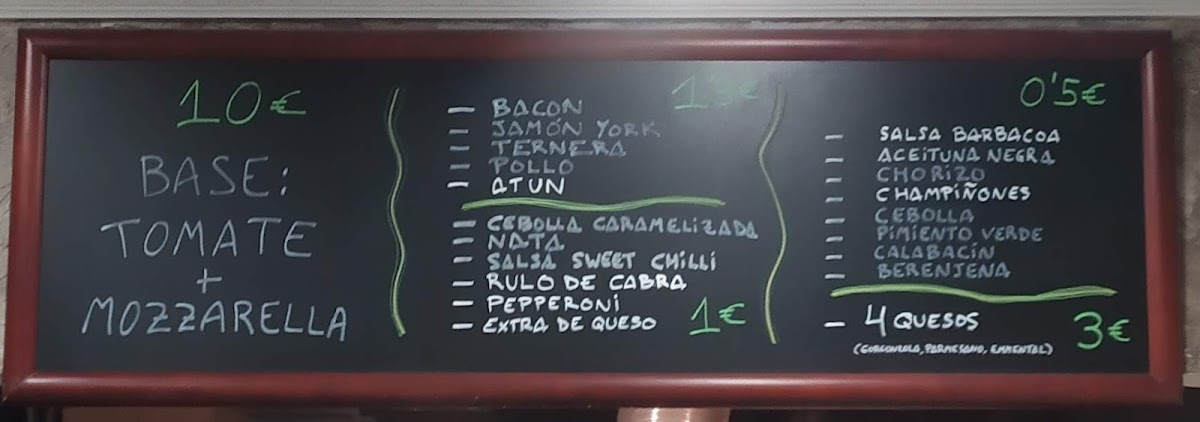 10€
BASE:
TOMATE
+
MOZZARELLA
- BACON
- JAMÓN YORK
- TERNERA
- POLLO
- ATUN
- CEBOLLA CARAMELIZADA
- NATA
- SALSA SWEET CHILLI
- RULO DE CABRA
- PEPPERONI
- EXTRA DE QUESO
1€
0'5€
- SALSA BARBACOA
- ACEITUNA NEGRA
- CHORIZO
- CHAMPIÑONES
- CEBOLLA
- PIMIENTO VERDE
- CALABACÍN
- BERENJENA
- 4 QUESOS
3€
(GORGONZOLA, PARMESANO, EMMENTAL)